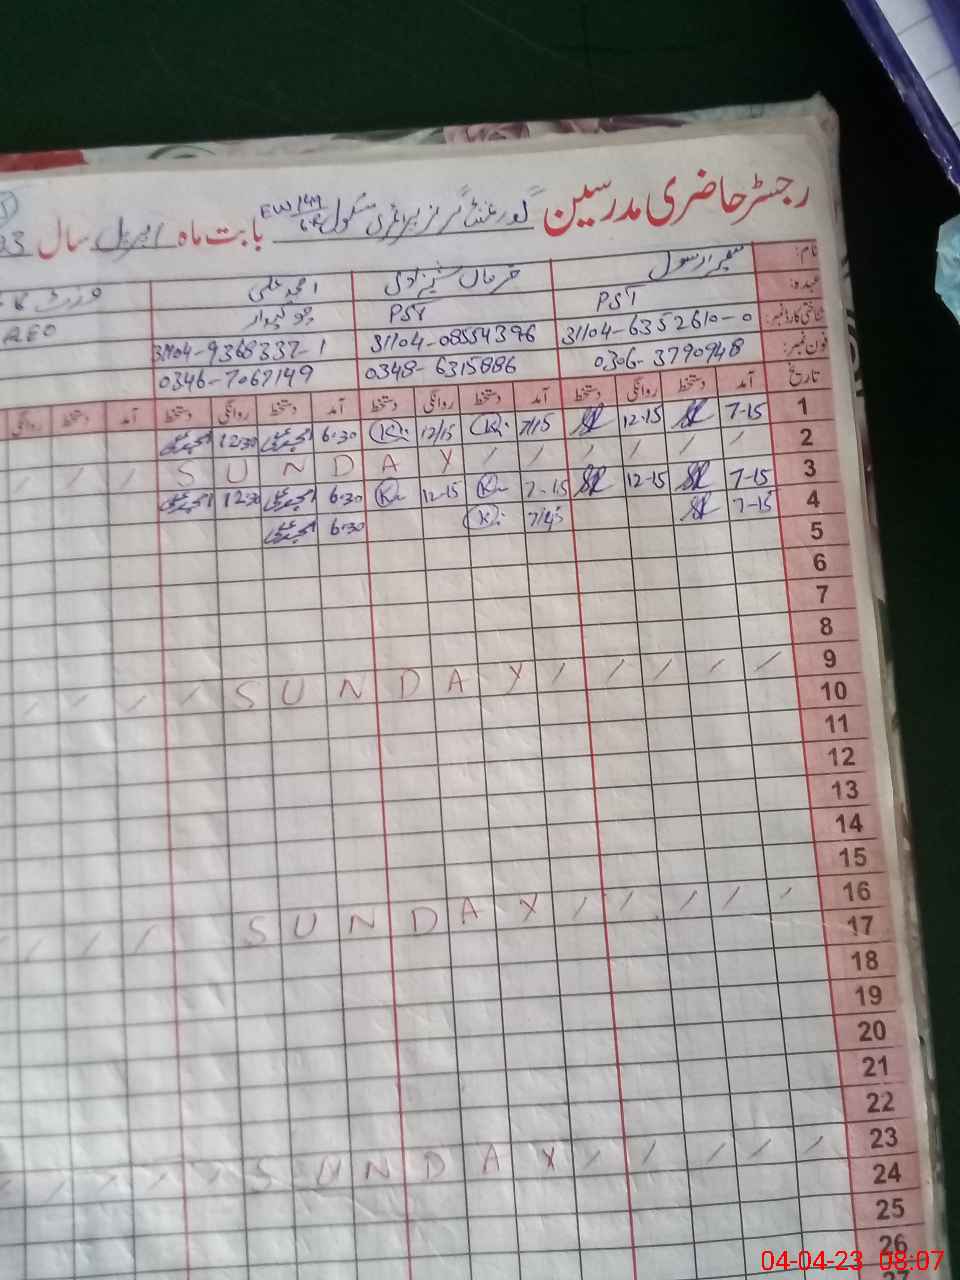 رجسٹر حاضری مدرسین گورنمنٹ گرلز پرائمری سکول بابت ماہ اپریل سال
نام: رسول
عہدہ: PST PST چوکیدار AEO
شناختی کارڈ نمبر: 31104-6352610-0 31104-08554396 31104-9368337-1
فون نمبر: 0306-3790948 0348-6315886 0346-7067149
تاریخ آمد دستخط روانگی دستخط آمد دستخط روانگی دستخط آمد دستخط روانگی دستخط آمد دستخط روانگی
1 7-15 12-15 7/15 12/15 6-30 12-30
2 SUNDAY
3 7-15 12-15 7-15 12-15 6-30 12-30
4 7-15 7/15 6-30
5
6
7
8
9 SUNDAY
10
11
12
13
14
15
16 SUNDAY
17
18
19
20
21
22
23 SUNDAY
24
25
26
27
04-04-23 08:07